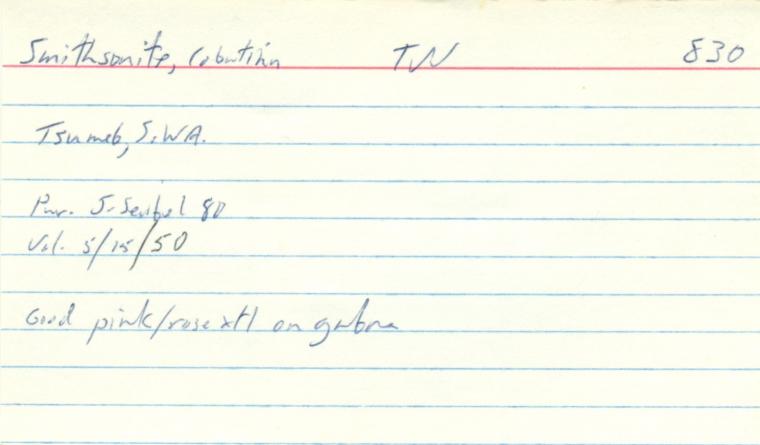 Smithsonite, Cobaltian TN 830
Tsumeb, S.W.A.
Pur. J. Seibel 80
Val. 5/15/50
Good pink/rose xtl on